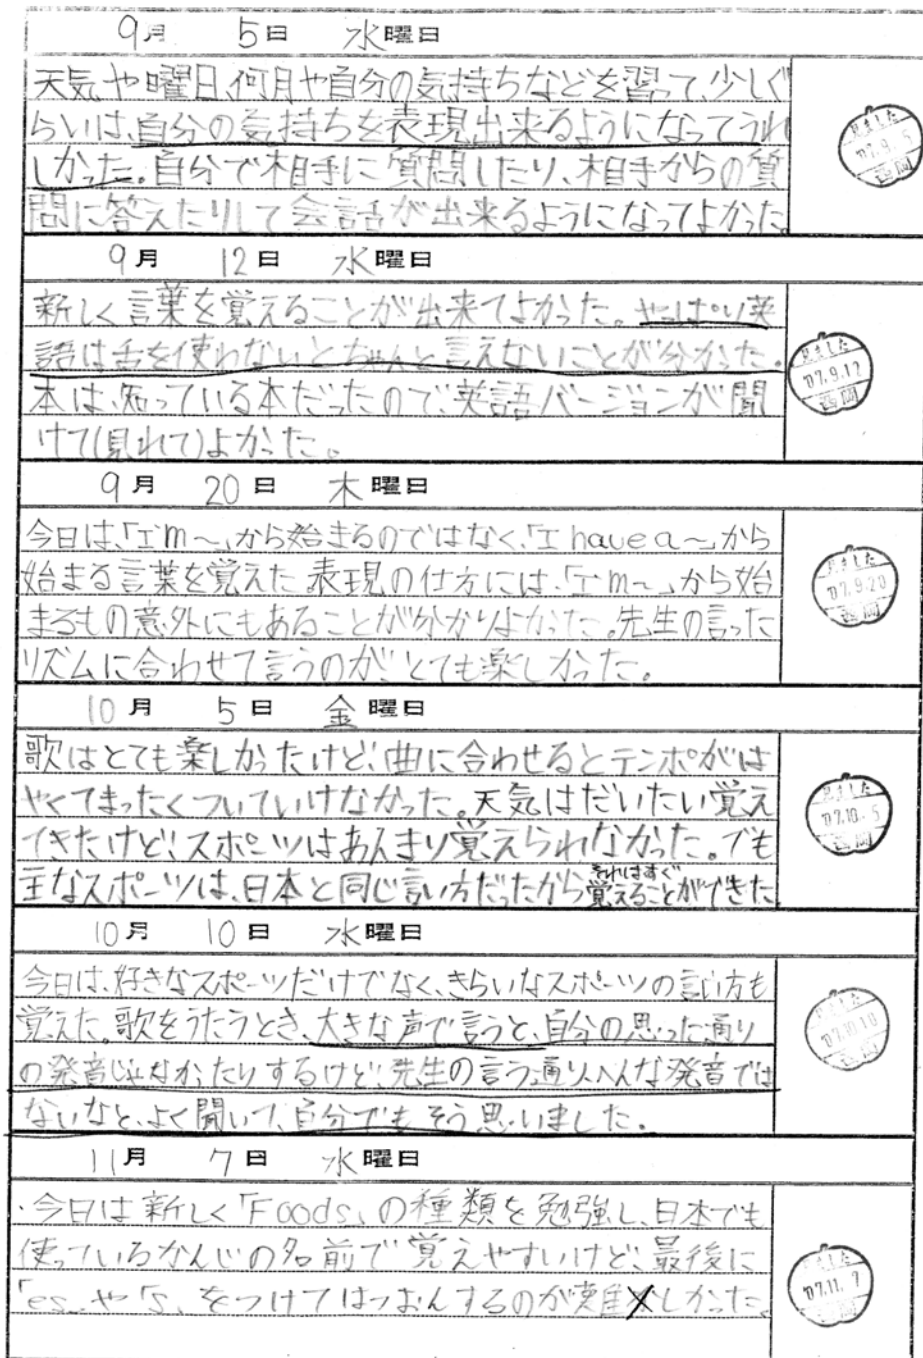 9月 5日 水曜日
天気や曜日、何月や自分の気持ちなどを習って、少しぐ
らいは、自分の気持ちを表現出来るようになってうれ
しかった。自分で相手に質問したり、相手からの質
問に答えたりして会話が出来るようになってよかった。
見ました
'07.9.-5
西岡
9月 12日 水曜日
新しく言葉を覚えることが出来てよかった。やっぱり英
語は舌を使わないとちゃんと言えないことが分かった。
本は、知っている本だったので、英語バージョンが聞
けて(見れて)よかった。
見ました
'07.9.12
西岡
9月 20日 木曜日
今日は、「I'm～」から始まるのではなく、「I have a～」から
始まる言葉を覚えた。表現の仕方には、「I'm～」から始
まるもの意外にもあることが分かりよかった。先生の言った
リズムに合わせて言うのが、とても楽しかった。
見ました
'07.9.20
西岡
10月 5日 金曜日
歌はとても楽しかったけど、曲に合わせるとテンポがは
やくてまったくついていけなかった。天気はだいたい覚え
てきたけど、スポーツはあんまり覚えられなかった。でも
主なスポーツは、日本と同じ言い方だったからそれはすぐ覚えることができた
見ました
'07.10.-5
西岡
10月 10日 水曜日
今日は、好きなスポーツだけでなく、きらいなスポーツの言い方も
覚えた。歌をうたうとき、大きな声で言うと、自分の思った通り
の発音じゃなかったりするけど、先生の言う通り、へんな発音では
ないなと、よく聞いて、自分でもそう思いました。
見ました
'07.10.10
西岡
11月 7日 水曜日
・今日は新しく「Foods」の種類を勉強し、日本でも
使っているかんじの名前で覚えやすいけど、最後に
「es」や「s」をつけてはつおんするのが難しかった。
見ました
'07.11.-7
西岡